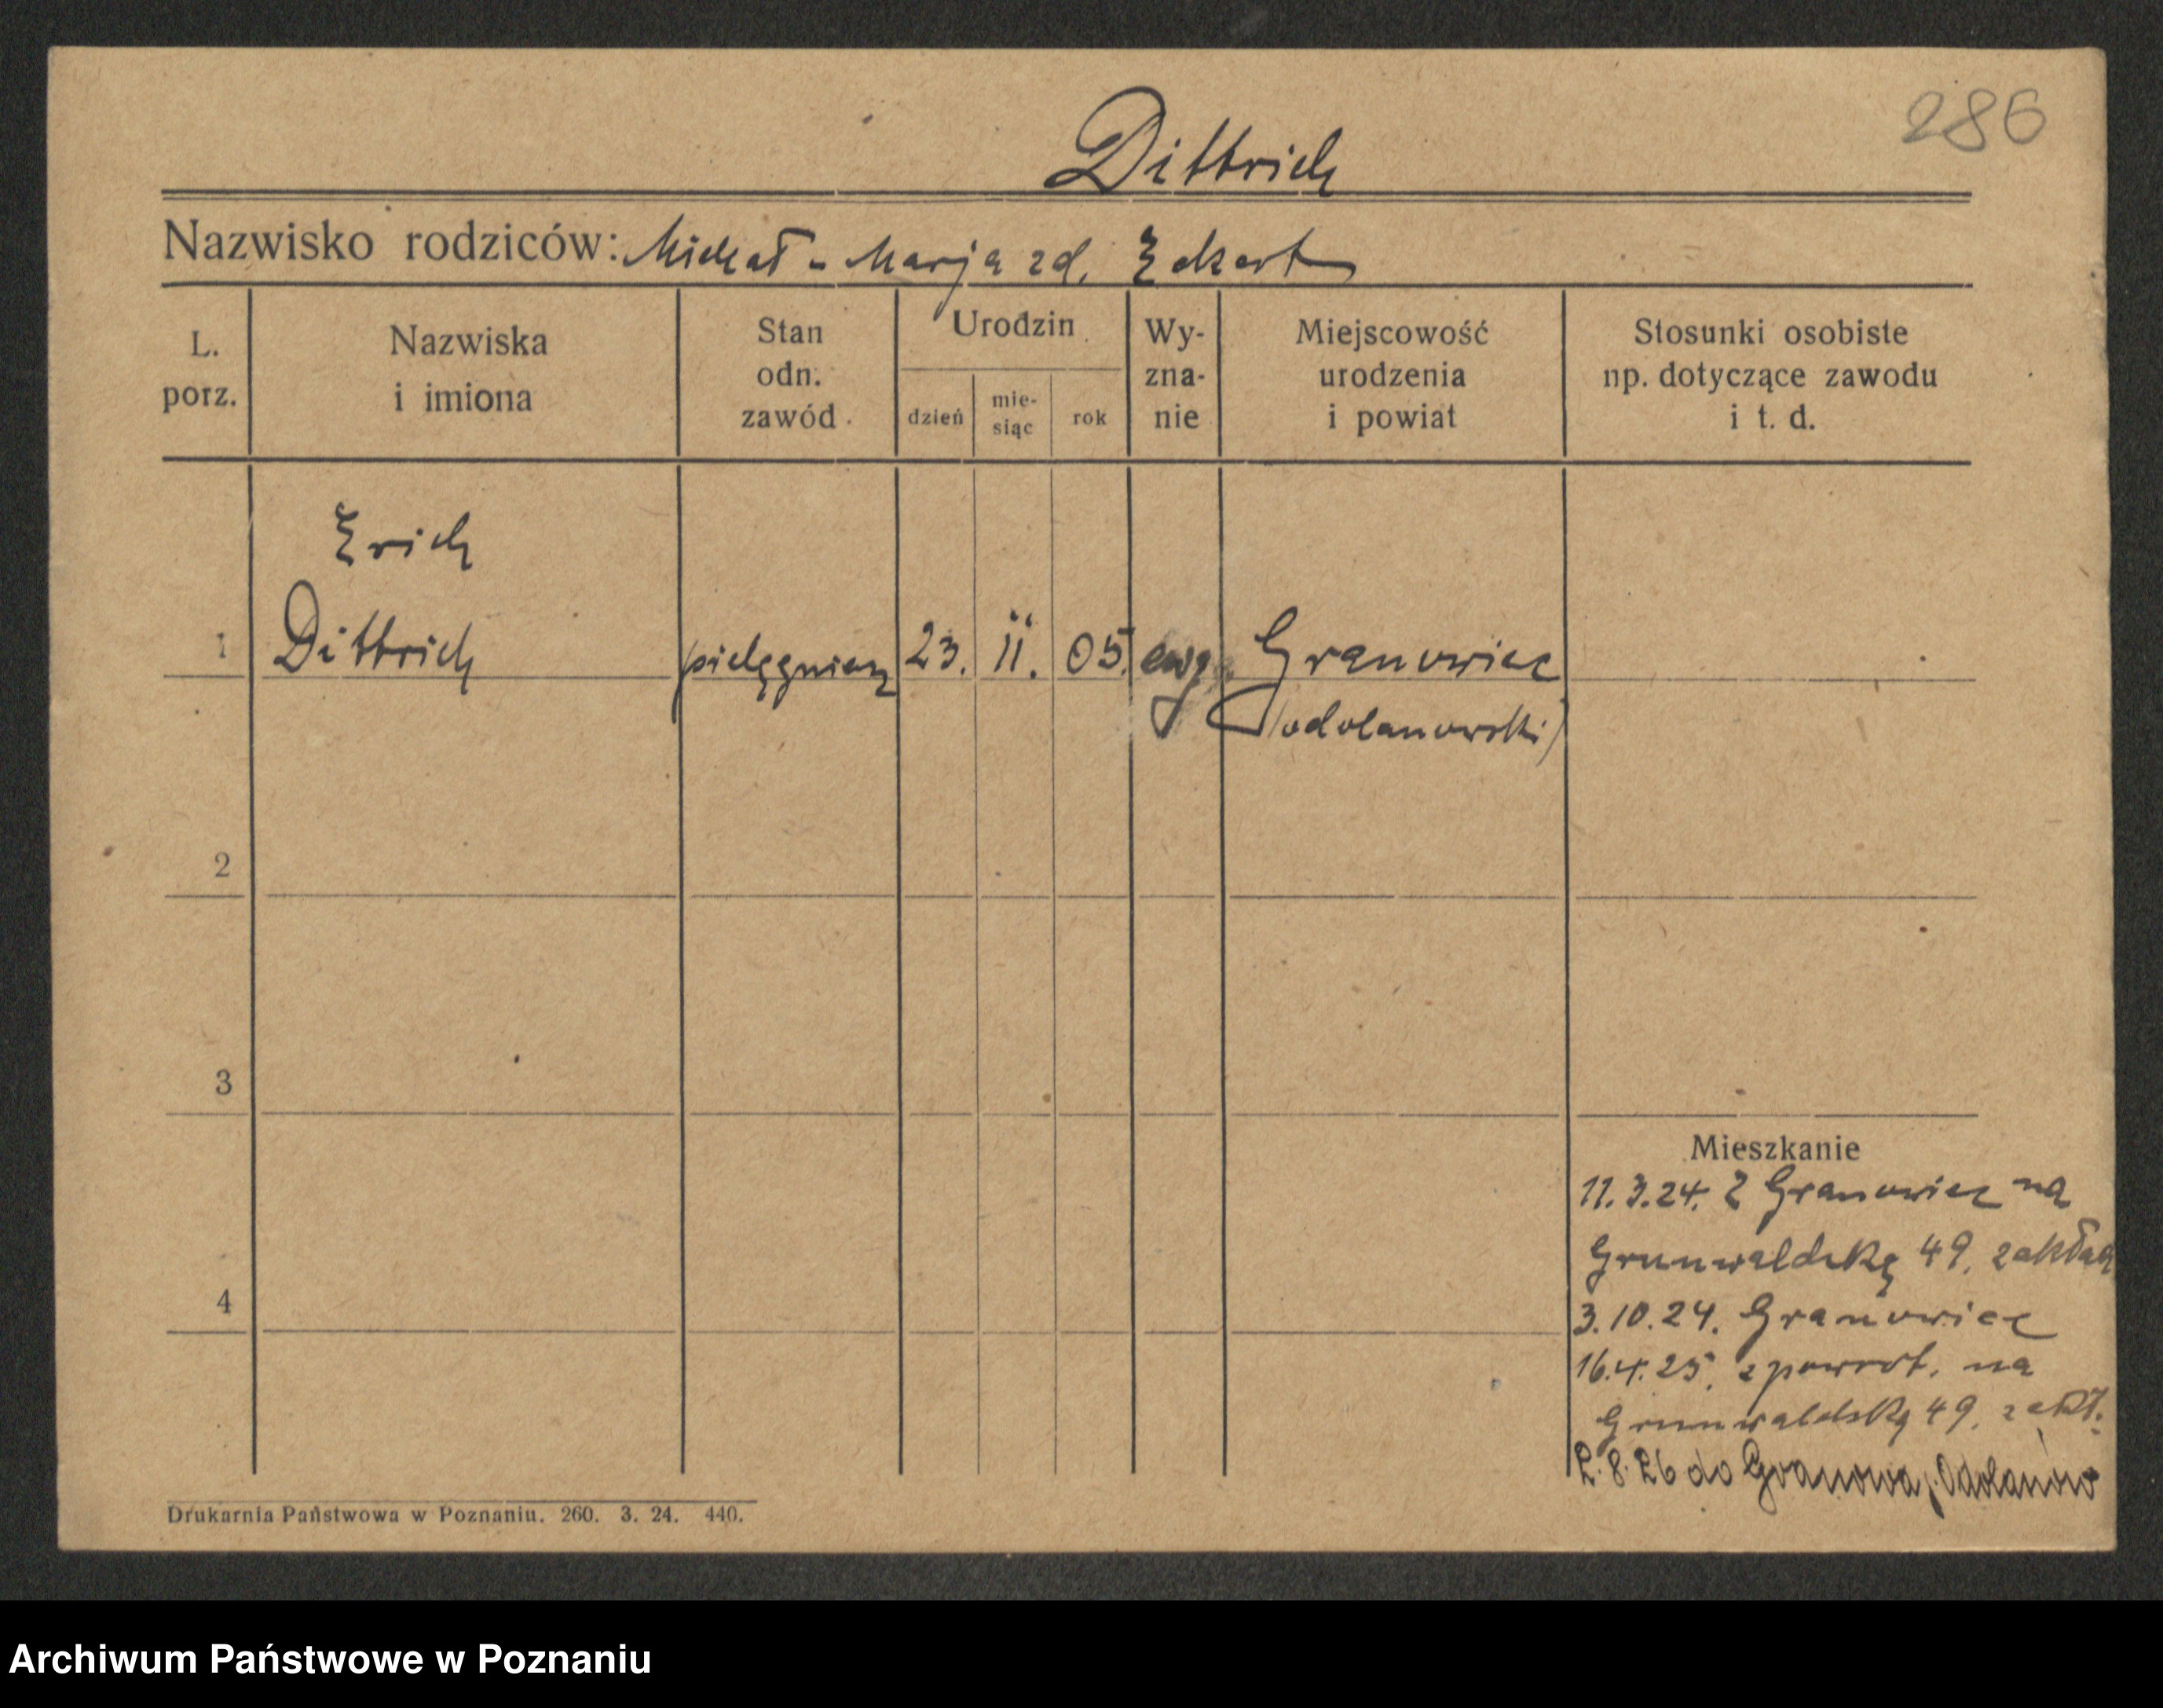 286
Dittrich
Nazwisko rodziców: Michał - Marja zd. Eckert
L. porz.
Nazwiska i imiona
Stan odn. zawód
Urodzin
dzień
mie-siąc
rok
Wy-zna-nie
Miejscowość urodzenia i powiat
Stosunki osobiste np. dotyczące zawodu i t. d.
Erich
1 Dittrich pielęgniarz 23. 11. 05. ewg Granowiec
odolanowski)
2
3
4
Mieszkanie
11.3.24. Z Granowiec na
Grunwaldzką 49, zakład
3.10.24. Granowiec
16.4.25. zpowrot. na
Grunwaldską 49. zakł.
2.8.26 do Granowa, p. Odolanów
Drukarnia Państwowa w Poznaniu. 260. 3. 24. 440.
Archiwum Państwowe w Poznaniu